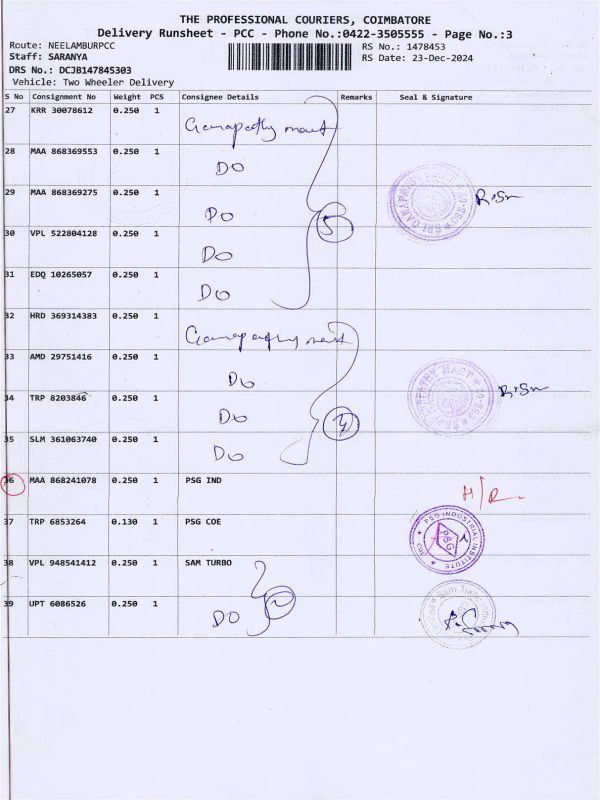 THE PROFESSIONAL COURIERS, COIMBATORE
Delivery Runsheet - PCC - Phone No.:0422-3505555 - Page No.:3
Route: NEELAMBURPCC RS No.: 1478453
Staff: SARANYA RS Date: 23-Dec-2024
DRS No.: DCJB147845303
Vehicle: Two Wheeler Delivery
S No Consignment No Weight PCS Consignee Details Remarks Seal & Signature
27 KRR 30078612 0.250 1 Ganapathy mart
28 MAA 868369553 0.250 1 DO
29 MAA 868369275 0.250 1 DO 5
30 VPL 522804128 0.250 1 DO
31 EDQ 10265057 0.250 1 DO
32 HRD 369314383 0.250 1 Ganapathy mart
33 AMD 29751416 0.250 1 DO
34 TRP 8203846 0.250 1 DO 4
35 SLM 361063740 0.250 1 DO
36 MAA 868241078 0.250 1 PSG IND H/R
37 TRP 6853264 0.130 1 PSG COE
PSG INDUSTRIAL INSTITUTE
PSG
38 VPL 948541412 0.250 1 SAM TURBO
39 UPT 6086526 0.250 1 DO 2